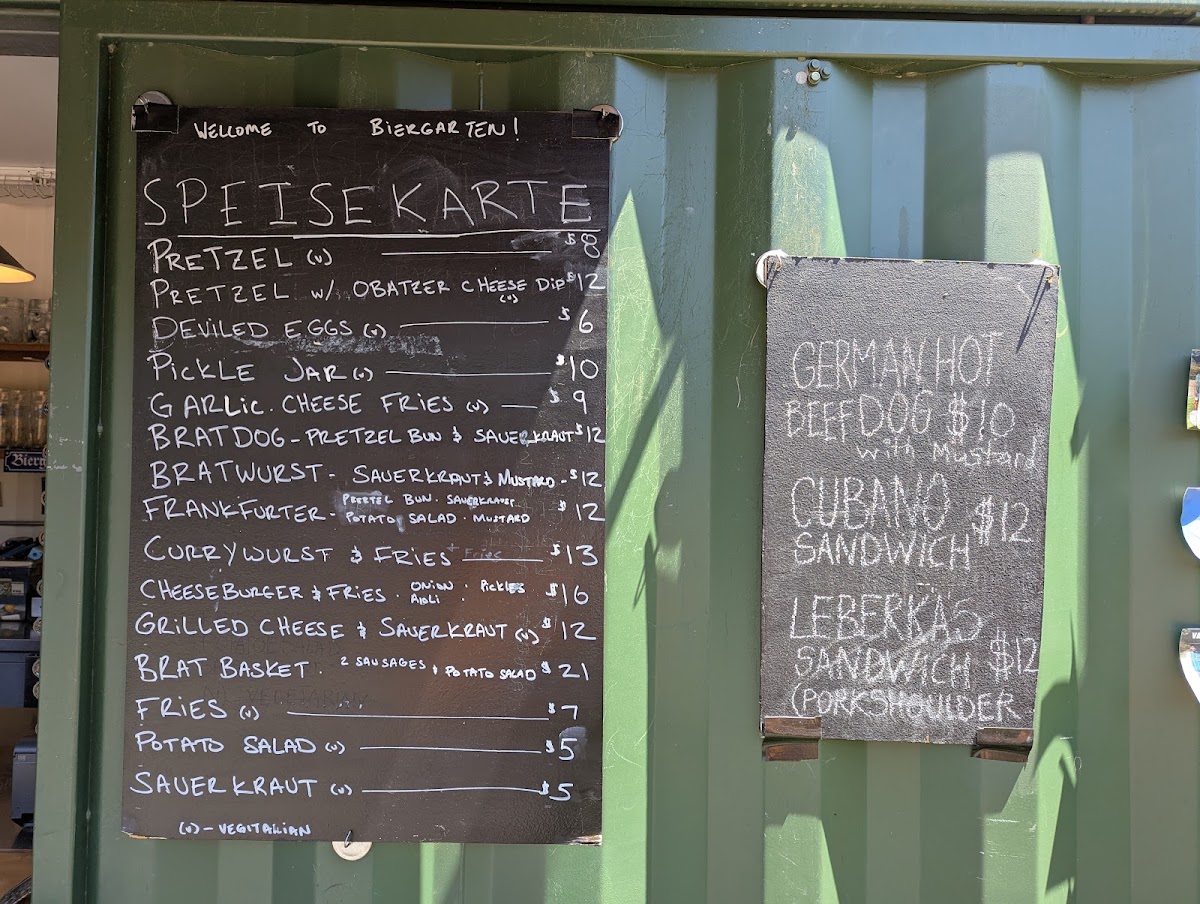 WELCOME TO BIERGARTEN!
SPEISEKARTE
PRETZEL (v) $8
PRETZEL w/ OBATZER CHEESE DIP $12
(v)
DEVILED EGGS (v) $6
PICKLE JAR (v) $10
GARLIC. CHEESE FRIES (v) $9
BRATDOG - PRETZEL BUN & SAUERKRAUT $12
BRATWURST - SAUERKRAUT & MUSTARD - $12
FRANKFURTER - PRETZEL BUN · SAUERKRAUT
POTATO SALAD · MUSTARD $12
CURRYWURST & FRIES + Fries $13
CHEESEBURGER & FRIES · ONION · PICKLES $16
AIOLI ·
GRILLED CHEESE & SAUERKRAUT (v) $12
BRAT BASKET · 2 SAUSAGES & POTATO SALAD $21
FRIES (v) $7
POTATO SALAD (v) $5
SAUERKRAUT (v) $5
(v) - VEGITARIAN
GERMAN HOT
BEEF DOG $10
with Mustard
CUBANO
SANDWICH $12
LEBERKÄS
SANDWICH $12
(PORKSHOULDER